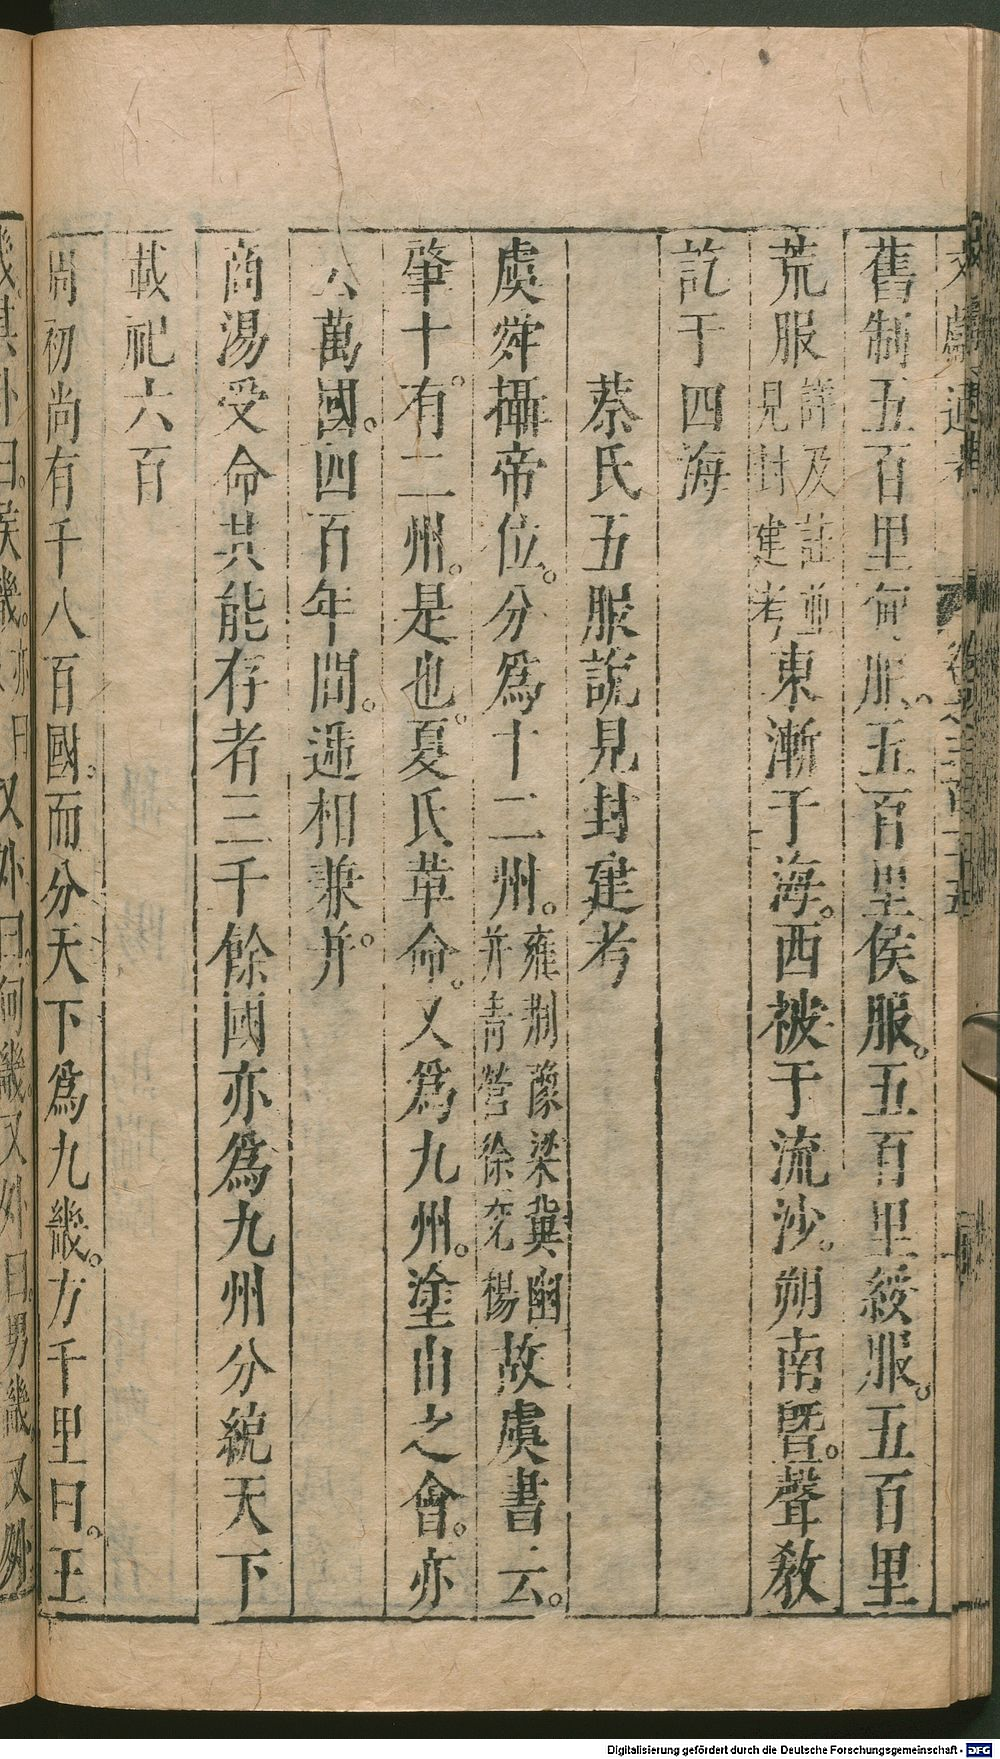 文獻通考 卷之三百十五
舊制五百里甸服。五百里侯服。五百里綏服。五百里
荒服詳及註並見封建考東漸于海。西被于流沙。朔南暨。聲教
訖于四海
蔡氏五服說見封建考
虞舜攝帝位。分爲十二州。雍荆豫梁冀幽并青營徐兖楊故虞書云。
肇十。有二州。是也。夏氏革命。又爲九州。塗山之會。亦
云萬國。四百年間。遞相兼并。
商湯受命其能存者三千餘國亦爲九州分統天下
載祀六百
周初尚有千八百國。而分天下爲九畿。方千里曰。王
畿。其外曰。侯畿。亦曰又外曰。甸畿。又外曰。男畿又外
Digitalisierung gefördert durch die Deutsche Forschungsgemeinschaft - DFG